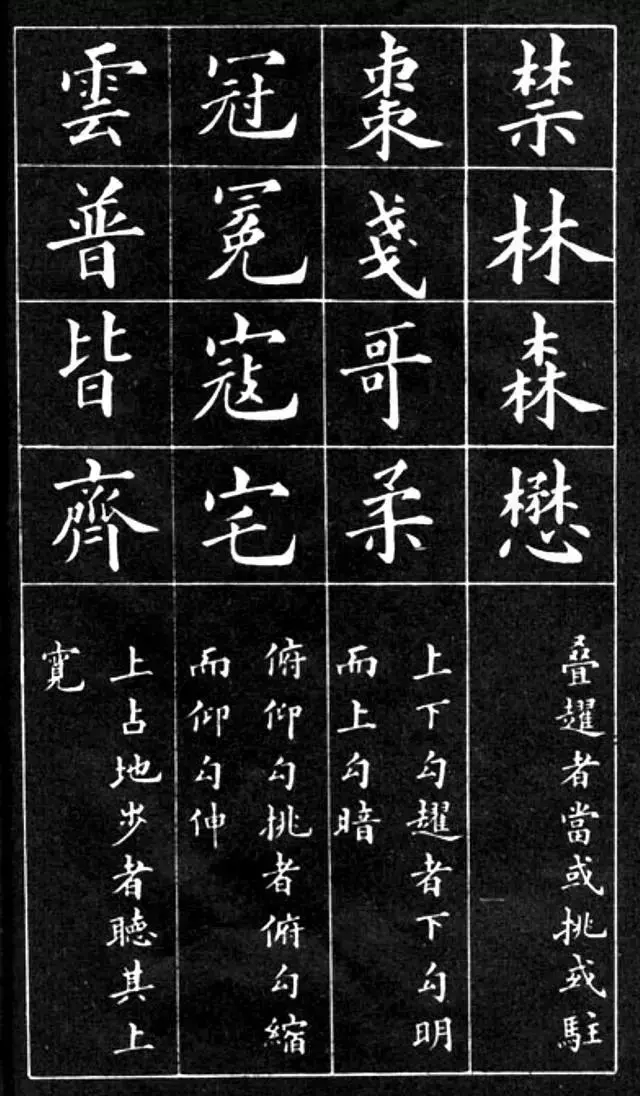 禁林森懋
叠趯者當或挑或駐
棗戔哥柔
上下勾趯者下勾明
而上勾暗
冠冕寇宅
俯仰勾挑者俯勾縮
而仰勾伸
雲普皆齊
上占地步者聽其上
寬